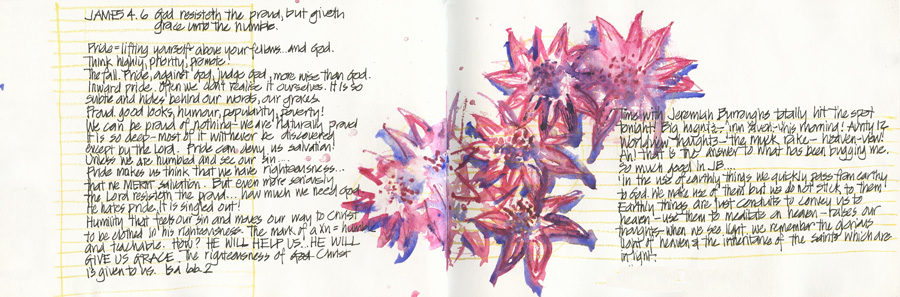 JAMES 4.6 God resisteth the proud, but giveth
grace unto the humble.
Pride = lifting yourself above your fellows... and God.
Think highly, priority, promote!
The fall. Pride, against God, judge God, more wise than God.
Inward pride. Often we don't realise it ourselves. It is so
subtle and hides behind our words, our graces.
Proud. good looks, humour, popularity, poverty!
We can be proud of nothing - we are naturally proud
It is so deep - most of it will never be discovered
except by the Lord. Pride can deny us salvation!
Unless we are humbled and see our sin....
Pride makes us think that we have righteousness...
that we MERIT salvation. But even more seriously
the Lord resisteth the proud... how much we need God
He hates pride, it is singled out!
Humility that feels our sin and moves our way to Christ
to be clothed in his righteousness. The mark of a xn = humble
and teachable. How? HE WILL HELP US! HE WILL
GIVE US GRACE. The righteousness of God Christ
is given to us. Isa 66.2
Time with Jeremiah Burroughs totally hit the spot
tonight! Big insight - inn silent - this morning! Aunty 12
worldview thoughts - the muck rake - heaven-view!
Ah! that is the answer to what has been bugging me.
So much good in JB....
In the use of earthly things we quickly pass from earthy
to God we make use of them but we do not stick to them
Earthly things are just conduits to convey us to
heaven - use them to meditate on heaven - raises our
thoughts - when we see light we remember the glorious
light of heaven & the inheritance of the saints which are
in light.